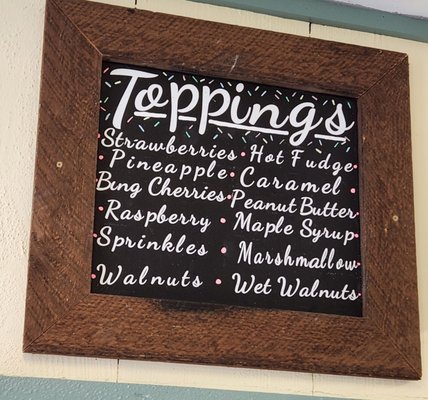 Toppings
Strawberries Hot Fudge
Pineapple Caramel
Bing Cherries Peanut Butter
Raspberry Maple Syrup
Sprinkles Marshmallow
Walnuts Wet Walnuts